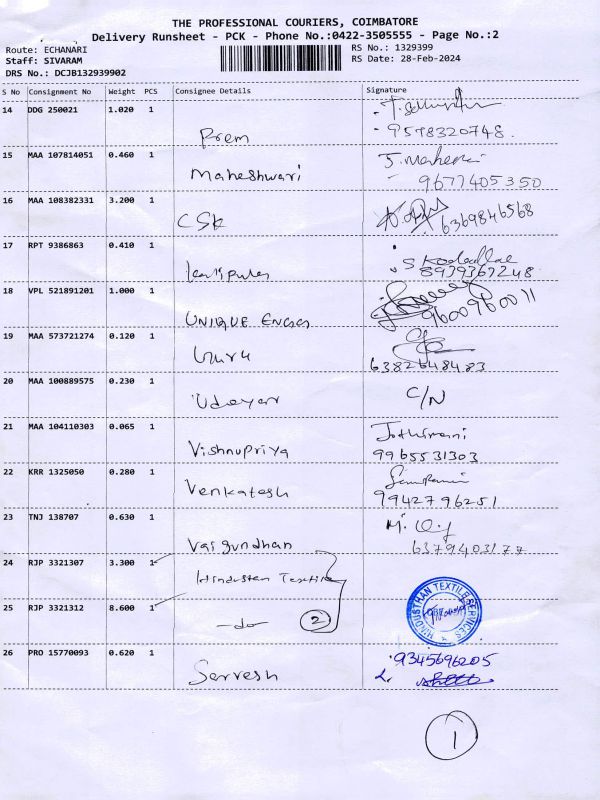 THE PROFESSIONAL COURIERS, COIMBATORE
Delivery Runsheet - PCK - Phone No.:0422-3505555 - Page No.:2
Route: ECHANARI
Staff: SIVARAM
DRS No.: DCJB132939902
RS No.: 1329399
RS Date: 28-Feb-2024
S No Consignment No Weight PCS Consignee Details Signature
14 DDG 250021 1.020 1
Prem 9578320748.
15 MAA 107814051 0.460 1
Maheshwari 9677405350
16 MAA 108382331 3.200 1
CSK 6369846568
17 RPT 9386863 0.410 1
8939367248
18 VPL 521891201 1.000 1
UNIQUE ENGG 9600960011
19 MAA 573721274 0.120 1
Guru 6382648483
20 MAA 100889575 0.230 1
Udayar C/N
21 MAA 104110303 0.065 1 Jothimani
Vishnupriya 9965531303
22 KRR 1325050 0.280 1
Venkatesh 9942796251
23 TNJ 138707 0.630 1
Vaigundhan 6379403177
24 RJP 3321307 3.300 1
Hindustan Textile
25 RJP 3321312 8.600 1
-do- 2
HINDUSTHAN TEXTILE SERVICES
26 PRO 15770093 0.620 1 9345696205
Sarvesh
1